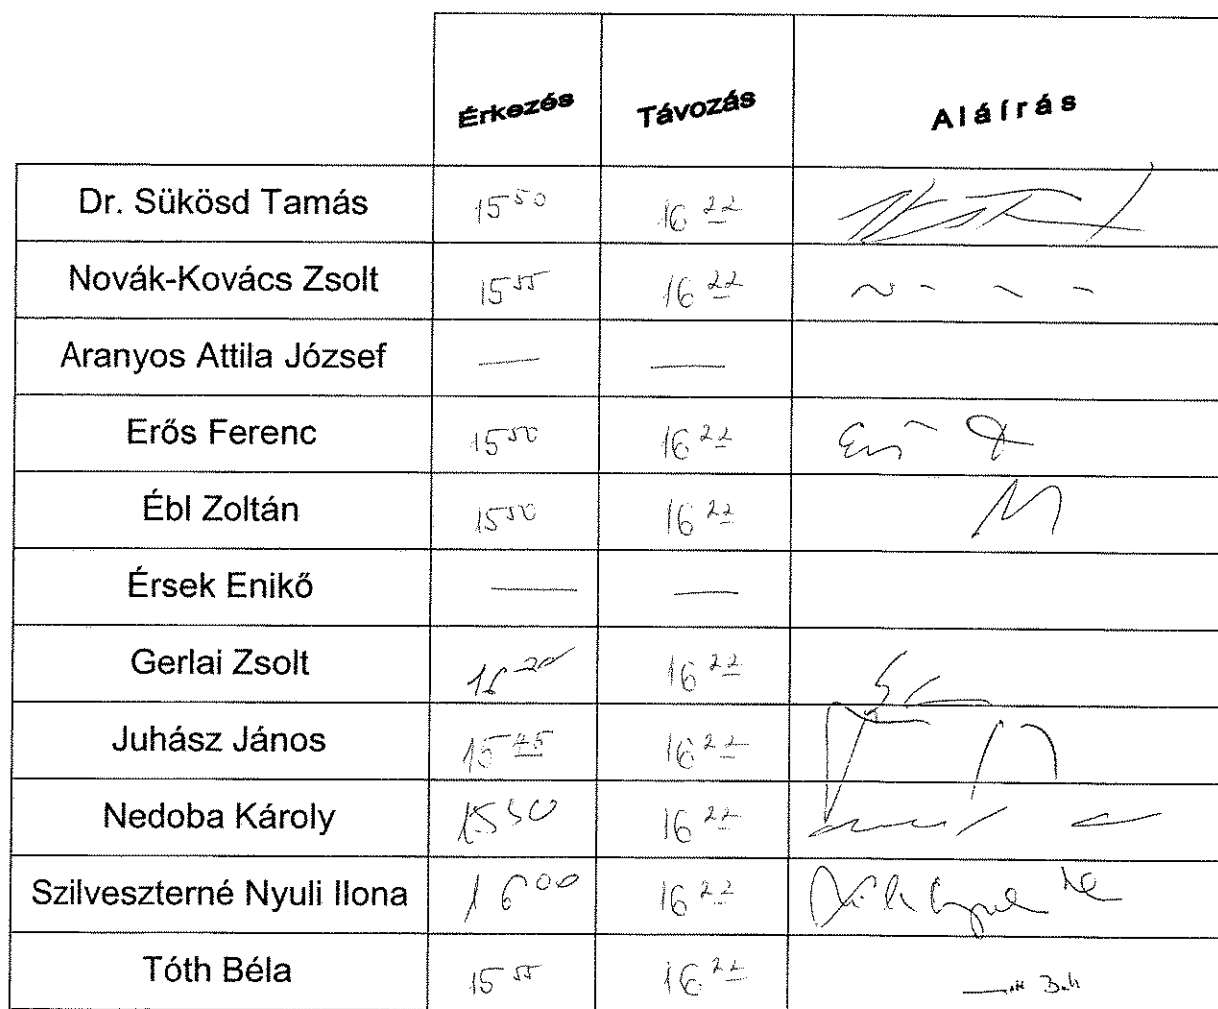 Érkezés Távozás Aláírás
Dr. Sükösd Tamás 15 50 16 22
Novák-Kovács Zsolt 15 55 16 22
Aranyos Attila József — —
Erős Ferenc 15 50 16 22
Ébl Zoltán 15 50 16 22
Érsek Enikő — —
Gerlai Zsolt 16 22
Juhász János 15 45 16 22
Nedoba Károly 15 50 16 22
Szilveszterné Nyuli Ilona 16 00 16 22
Tóth Béla 15 55 16 22